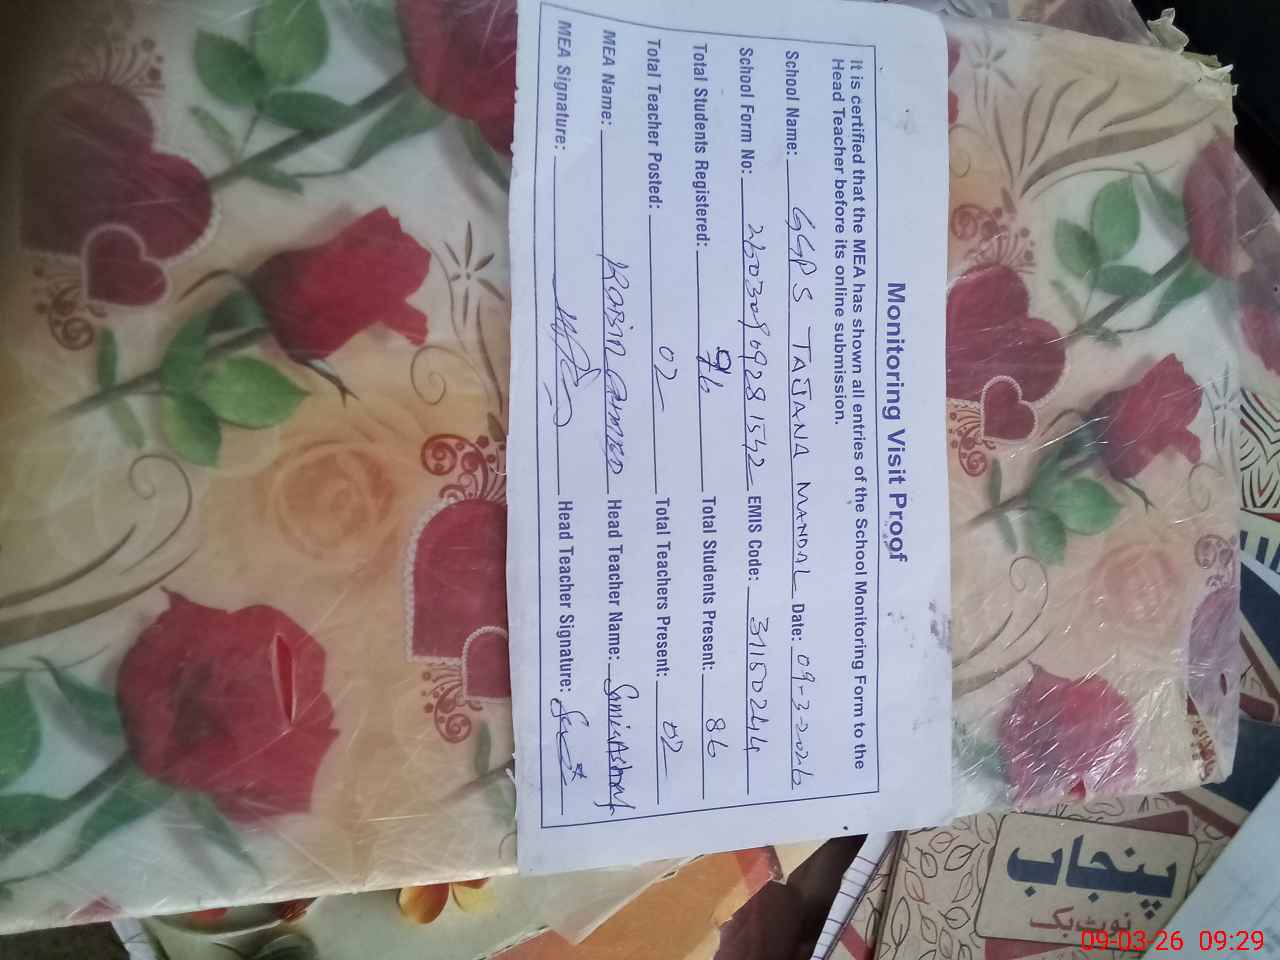 Monitoring Visit Proof
It is certified that the MEA has shown all entries of the School Monitoring Form to the
Head Teacher before its online submission.
School Name: GGPS TAJJANA MANDAL Date: 09-3-2026
School Form No: 26030909281542 EMIS Code: 31150244
Total Students Registered: 96 Total Students Present: 86
Total Teacher Posted: 02 Total Teachers Present: 02
MEA Name: Head Teacher Name: Sonia Ashraf
MEA Signature: Head Teacher Signature:
پنجاب
نوٹ بک
09-03-26 09:29